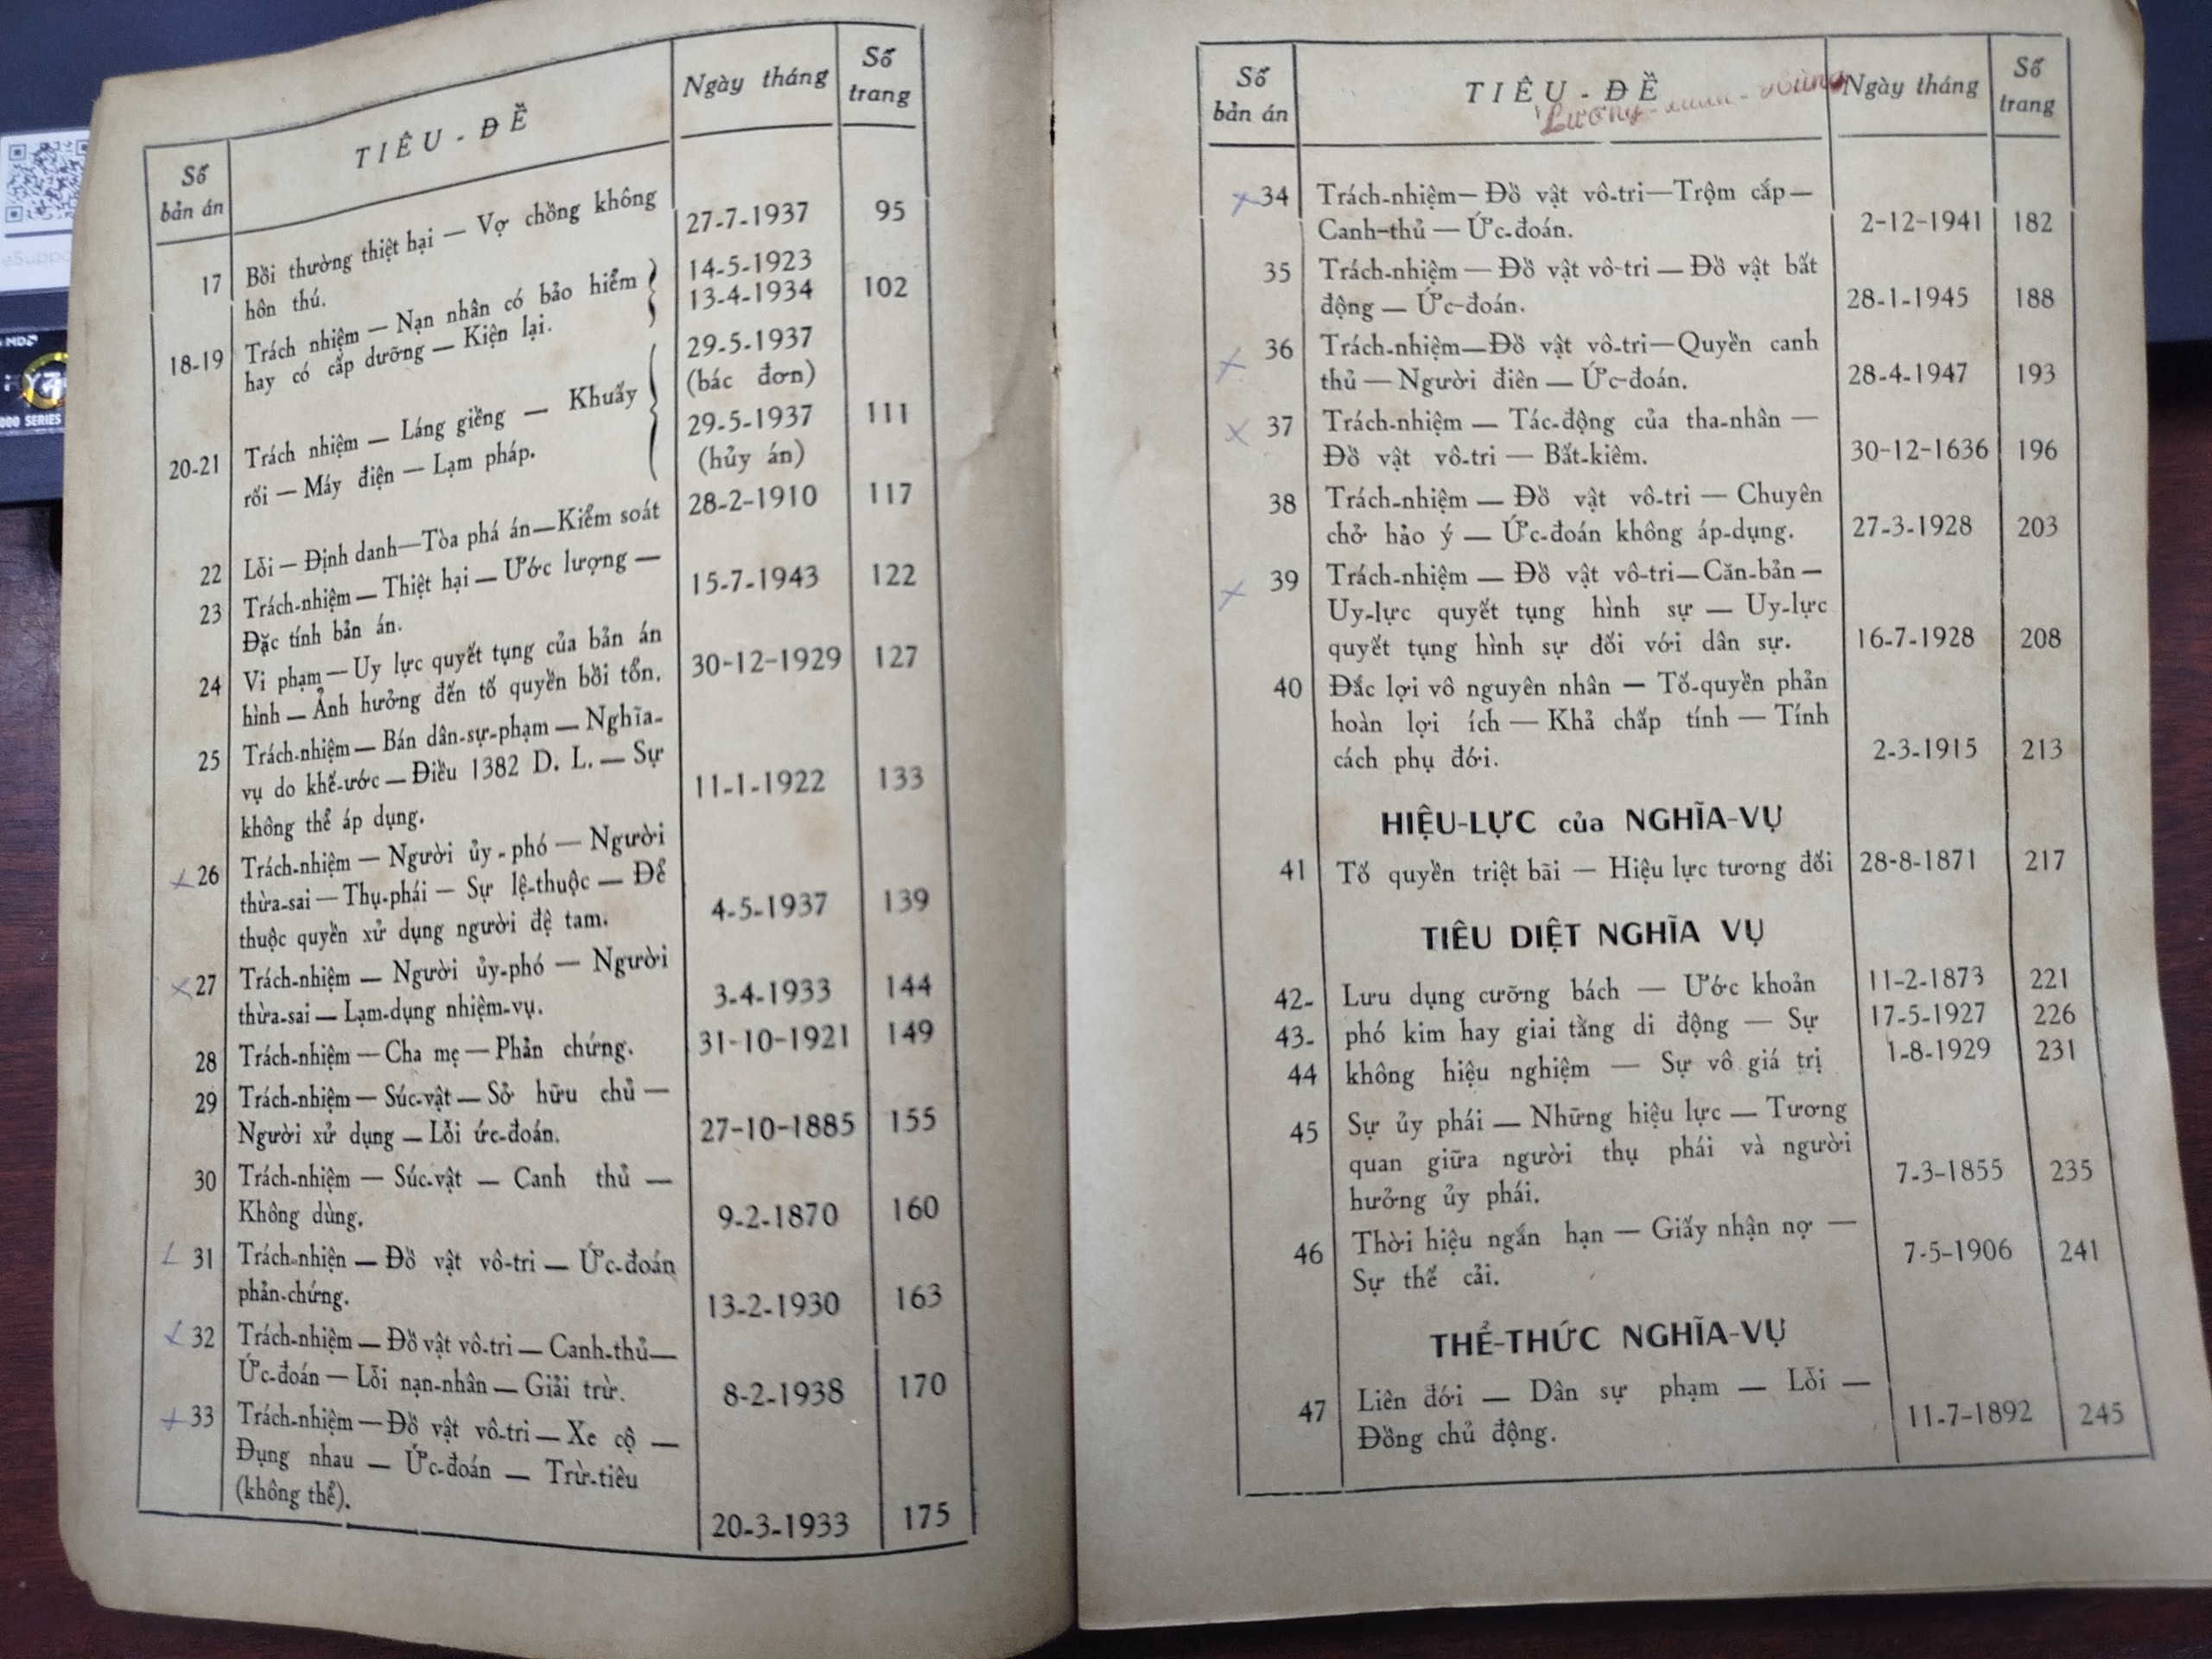 Số
bản án
TIÊU - ĐỀ
Ngày tháng
Số
trang
17 Bồi thường thiệt hại — Vợ chồng không
hôn thú. 27-7-1937 95
18-19 Trách nhiệm — Nạn nhân có bảo hiểm 14-5-1923
hay có cấp dưỡng — Kiện lại. 13-4-1934 102
29-5-1937
(bác đơn)
20-21 Trách nhiệm — Láng giềng — Khuấy 29-5-1937 111
rối — Máy điện — Lạm pháp. (hủy án)
22 Lỗi — Định danh—Tòa phá án—Kiểm soát 28-2-1910 117
23 Trách-nhiệm — Thiệt hại — Ước lượng —
Đặc tính bản án. 15-7-1943 122
24 Vi phạm — Uy lực quyết tụng của bản án
hình — Ảnh hưởng đến tố quyền bồi tổn. 30-12-1929 127
25 Trách-nhiệm — Bán dân-sự-phạm — Nghĩa-
vụ do khế-ước — Điều 1382 D. L. — Sự
không thể áp dụng. 11-1-1922 133
26 Trách-nhiệm — Người ủy-phó — Người
thừa-sai — Thụ-phái — Sự lệ-thuộc — Để
thuộc quyền xử dụng người đệ tam. 4-5-1937 139
27 Trách-nhiệm — Người ủy-phó — Người
thừa-sai — Lạm-dụng nhiệm-vụ. 3-4-1933 144
28 Trách-nhiệm — Cha mẹ — Phản chứng. 31-10-1921 149
29 Trách-nhiệm — Súc-vật — Sở hữu chủ —
Người xử dụng — Lỗi ức-đoán. 27-10-1885 155
30 Trách-nhiệm — Súc-vật — Canh thủ —
Không dùng. 9-2-1870 160
31 Trách-nhiện — Đồ vật vô-tri — Ức-đoán
phản-chứng. 13-2-1930 163
32 Trách-nhiệm — Đồ vật vô-tri — Canh-thủ—
Ức-đoán — Lỗi nạn-nhân — Giải trừ. 8-2-1938 170
33 Trách-nhiệm — Đồ vật vô-tri — Xe cộ —
Đụng nhau — Ức-đoán — Trừ-tiêu
(không thể). 20-3-1933 175
Số
bản án
TIÊU - ĐỀ
Ngày tháng
Số
trang
34 Trách-nhiệm— Đồ vật vô-tri—Trộm cắp—
Canh-thủ — Ức-đoán. 2-12-1941 182
35 Trách-nhiệm — Đồ vật vô-tri — Đồ vật bất
động — Ức-đoán. 28-1-1945 188
36 Trách-nhiệm—Đồ vật vô-tri—Quyền canh
thủ — Người điên — Ức-đoán. 28-4-1947 193
37 Trách-nhiệm — Tác-động của tha-nhân —
Đồ vật vô-tri — Bất-kiêm. 30-12-1636 196
38 Trách-nhiệm — Đồ vật vô-tri — Chuyên
chở hảo ý — Ức-đoán không áp-dụng. 27-3-1928 203
39 Trách-nhiệm — Đồ vật vô-tri—Căn-bản—
Uy-lực quyết tụng hình sự — Uy-lực
quyết tụng hình sự đối với dân sự. 16-7-1928 208
40 Đắc lợi vô nguyên nhân — Tố-quyền phản
hoàn lợi ích — Khả chấp tính — Tính
cách phụ đới. 2-3-1915 213
HIỆU-LỰC của NGHĨA-VỤ
41 Tố quyền triệt bãi — Hiệu lực tương đối 28-8-1871 217
TIÊU DIỆT NGHĨA VỤ
42- Lưu dụng cưỡng bách — Ước khoản 11-2-1873 221
43- phó kim hay giai tằng di động — Sự 17-5-1927 226
44 không hiệu nghiệm — Sự vô giá trị 1-8-1929 231
45 Sự ủy phái — Những hiệu lực — Tương
quan giữa người thụ phái và người
hưởng ủy phái. 7-3-1855 235
46 Thời hiệu ngắn hạn — Giấy nhận nợ —
Sự thế cải. 7-5-1906 241
THỂ-THỨC NGHĨA-VỤ
47 Liên đới — Dân sự phạm — Lỗi —
Đồng chủ động. 11-7-1892 245